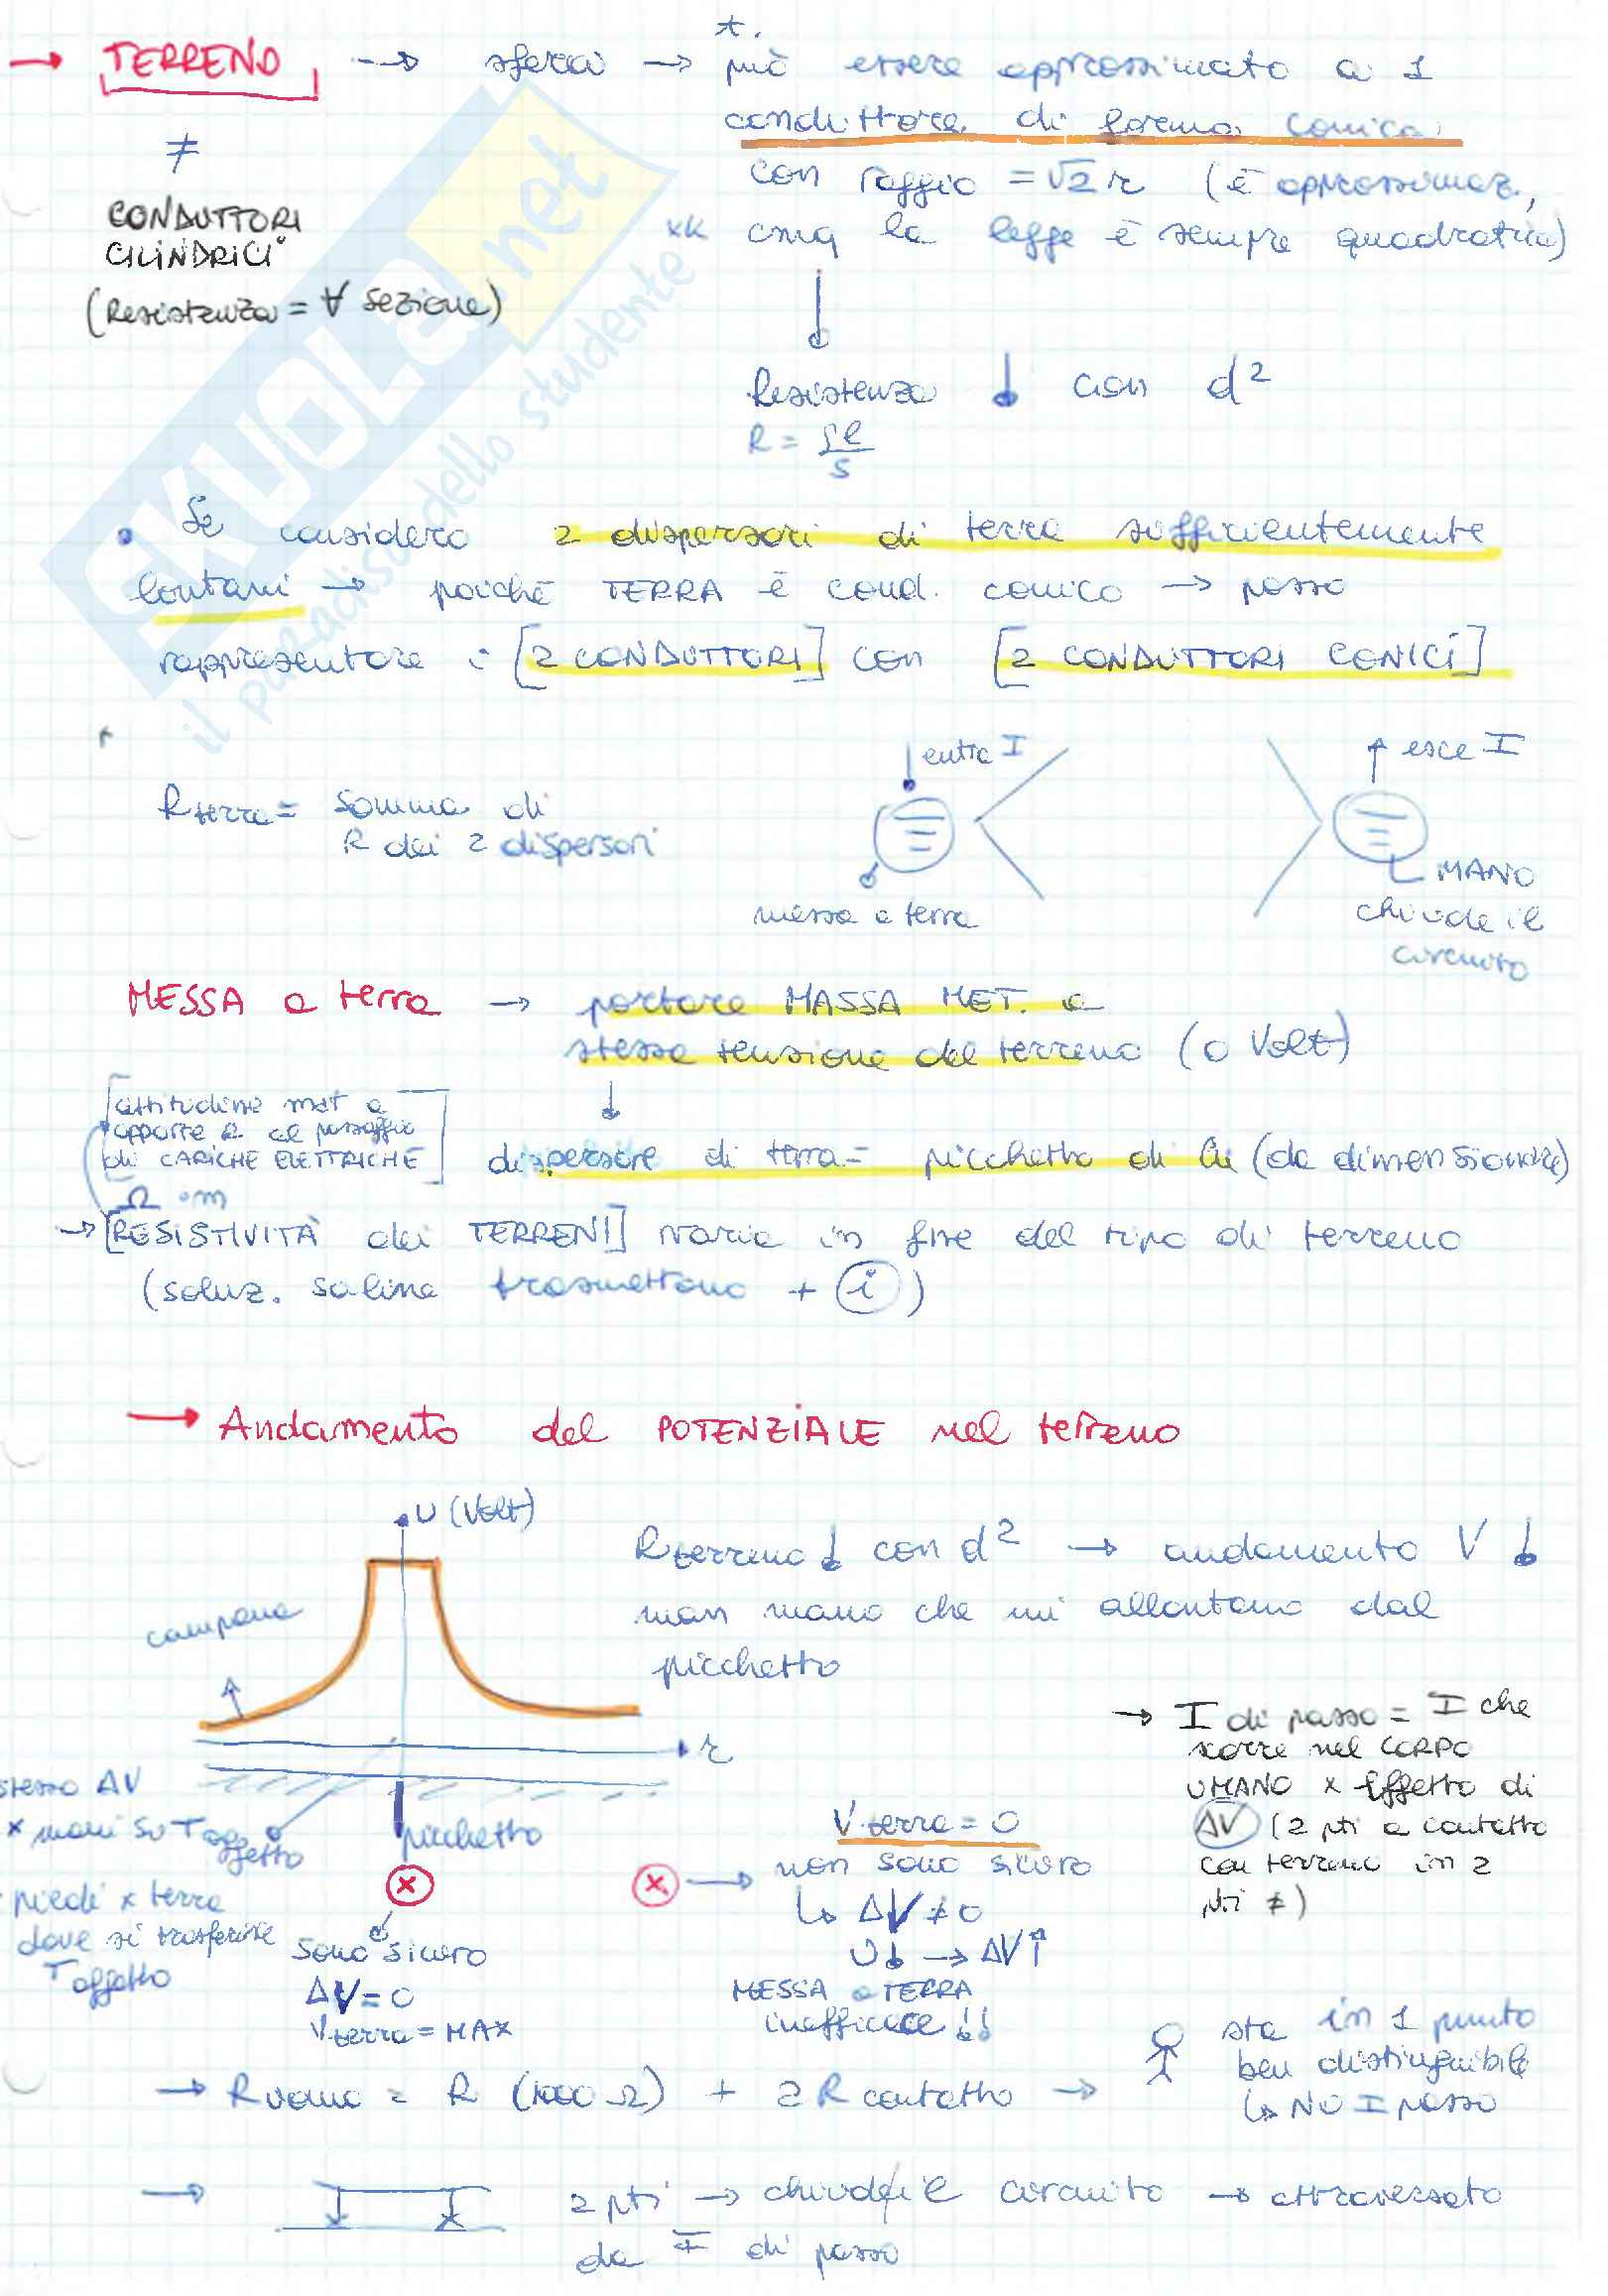 → TERRENO --→ sfera → può essere approssimato a 1
*.
conduttore di forma conica
≠
con raggio = √2 r (è approssimaz.,
xk cmq la legge è sempre quadratica)
CONDUTTORI
CILINDRICI
(Resistenza = ∀ sezione)
Resistenza ↓ con d²
R = ρl/S
• Se considero 2 dispersori di terra sufficientemente
lontani → poiché TERRA è cond. conico → posso
rappresentare i [2 CONDUTTORI] con [2 CONDUTTORI CONICI]
↓ entra I
↑ esce I
Rterra = somma di
R dei 2 dispersori
messa a terra
MANO
chiude il
circuito
MESSA a terra → portare MASSA MET. a
stessa tensione del terreno (0 Volt)
↓
[attitudine mat a
opporre R al passaggio
di CARICHE ELETTRICHE]
Ω·m
dispersore di terra = picchetto di Cu (da dimensionare)
→ [RESISTIVITÀ dei TERRENI] varia in fne del tipo di terreno
(soluz. saline trasmettono + i)
→ Andamento del POTENZIALE nel terreno
U (Volt)
campana
r
picchetto
Rterreno ↓ con d² → andamento V ↓
man mano che mi allontano dal
picchetto
→ I di passo = I che
scorre nel CORPO
UMANO x effetto di
ΔV (2 pti a contatto
con terreno in 2
pti ≠)
stesso ΔV
x mani su T oggetto
piedi x terra
dove si trasferisce
T oggetto
sono sicuro
ΔV = 0
Vterra = MAX
V terra = 0
non sono sicuro
↳ ΔV ≠ 0
U↓ → ΔV↑
MESSA a TERRA
inefficace !!
→ Ruomo = R (1000 Ω) + 2 R contatto →
sta in 1 punto
ben distinguibile
↳ NO I passo
→ 2 pti → chiude il circuito → attraversato
da I di passo
SKUOLA.net
il paradiso dello studente